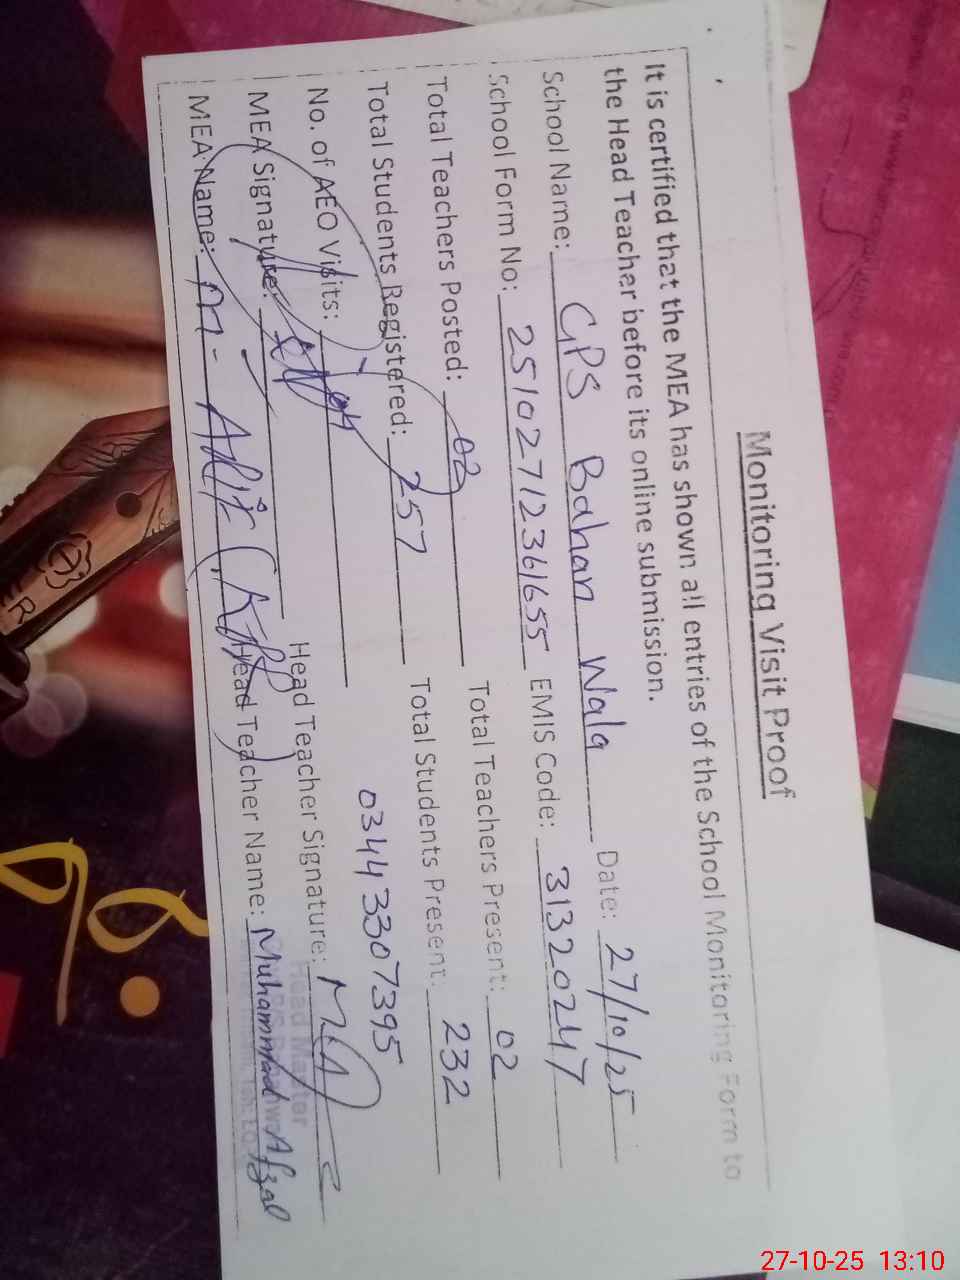 Monitoring Visit Proof
It is certified that the MEA has shown all entries of the School Monitoring Form to
the Head Teacher before its online submission.
School Name: GPS Bahan Wala Date: 27/10/25
School Form No: 2510271236 1655 EMIS Code: 31320247
Total Teachers Posted: 02 Total Teachers Present: 02
Total Students Registered: 257 Total Students Present: 232
No. of AEO Visits: 03443307395
MEA Signature: Head Teacher Signature:
MEA Name: M. Head Teacher Name: Muhammad Afzal
Head Master
27-10-25 13:10